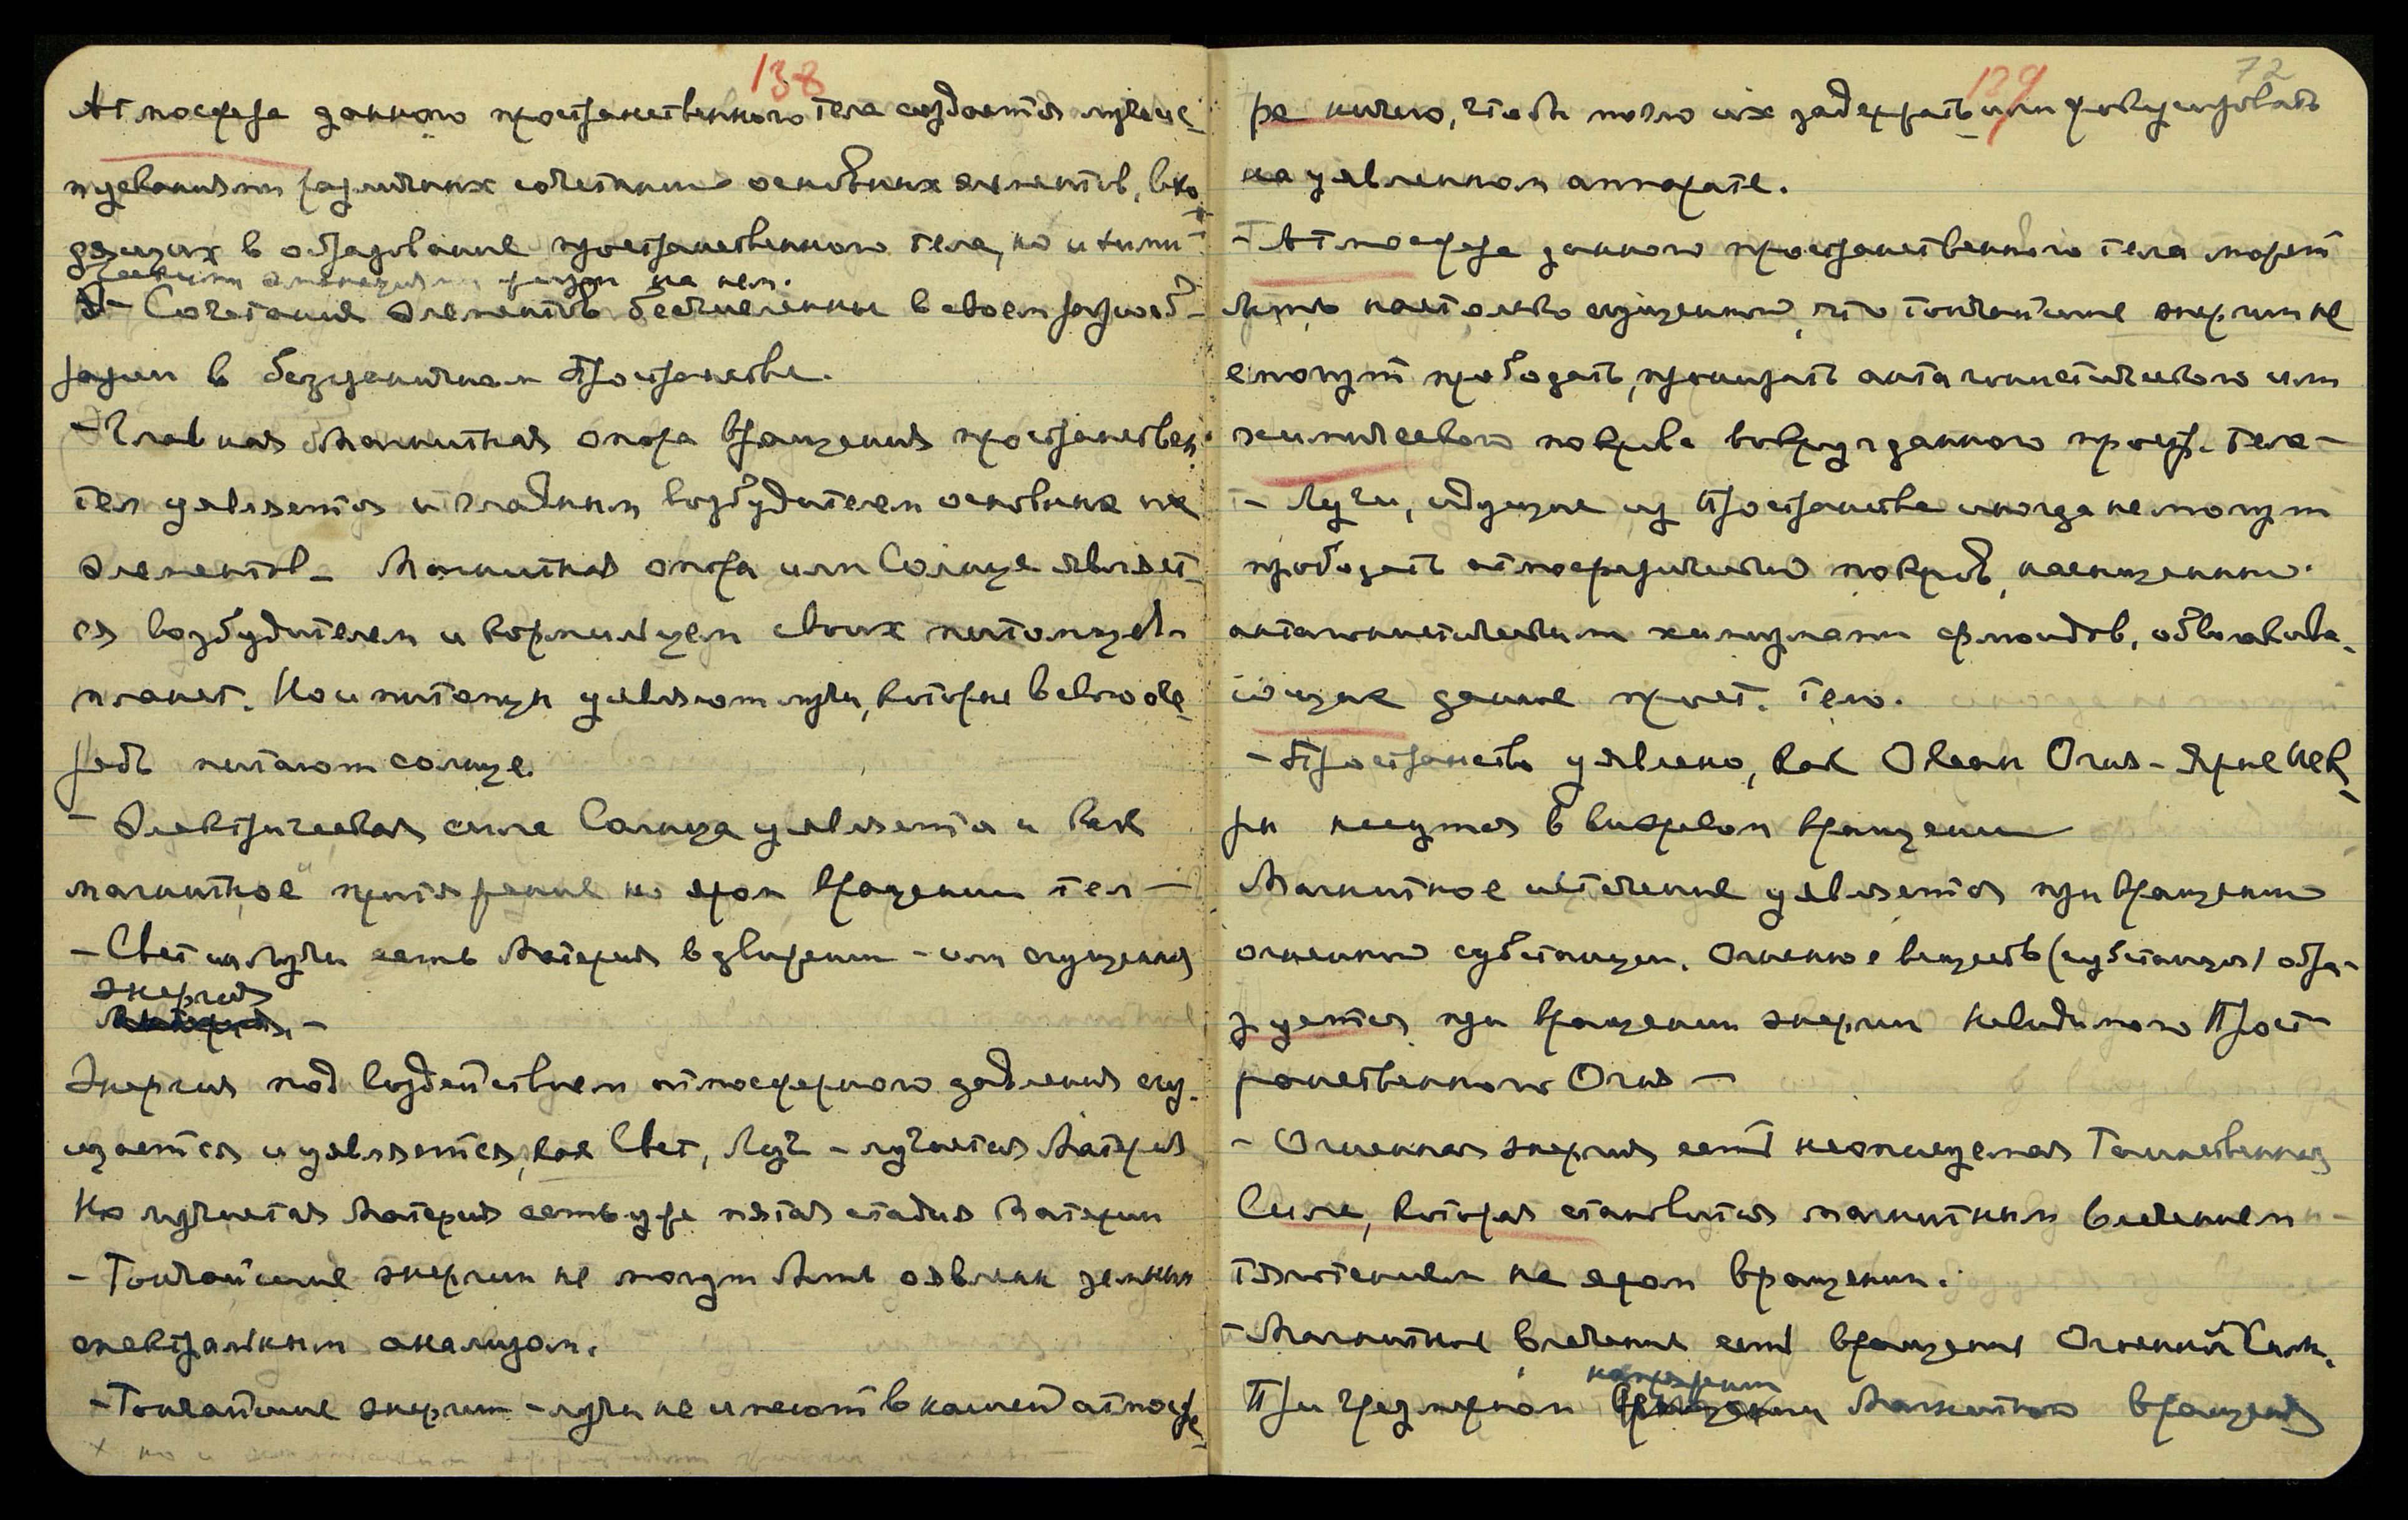 138
Атмосфера данного пространственного тела создается лучеис-
пусканиями различных сочетаний основных элементов, вхо-
дящих в образование пространственного тела, но и хими-
ческими эманациями жизни на нем.
– Сочетания элементов бесчисленны в своем разнооб-
разии в безграничном Пространстве.
– Главная Магнитная опора вращения пространствен.
тел уявляется и главным возбудителем основных их
элементов – Магнитная опора или Солнце является-
ся возбудителем и кормильцем своих питомцев –
планет. Но и питомцы уявляют лучи, которые в свою оче-
редь питают солнце.
– Электрическая сила Солнца уявляется и как
магнитное притяжение на яром вращении тел –
– Свет или лучи есть Материя в движении – или сгущенная
энергия –
Энергия под воздействием атмосферного давления сгу-
щается и уявляется, как Свет, Луч – лучистая Материя
Но лучистая Материя есть уже пятая стадия Материи
– Тончайшие энергии не могут быть оявлены земным
спектральным анализом.
– Тончайшие энергии – лучи не имеют в нашей атмосфе-
× но и
129
72
ре ничего, чтобы могло их задержать или
на уявленном аппарате.
– Атмосфера данного пространственного тела может
быть настолько сгущенной, что тончайшие энергии не
смогут прободать, проницать антагонистического им
химического покрова вокруг данного простр. тела –
– Лучи, идущие из Пространства иногда не могут
прободать атмосферический покров, насыщенный
антагонистическими химизмами флюидов, обволакива-
ющие данное прост. тело.
– Пространство уявлено, как Океан Огня – Ярые Иск-
ры несутся в вихревом вращении
Магнитное истечение уявляется при вращении
огненной субстанции. Огненное вещество (субстанция) обра-
зуется при вращении энергии невидимого Прост-
ранственного Огня –
– Огненная энергия есть неописуемая Таинственная
Сила, которая становится магнитным влечением –
тяготением на яром вращении.
– Магнитное влечение есть вращение Огненной Силы.
напряжении
При чрезмерном Магнитного вращения